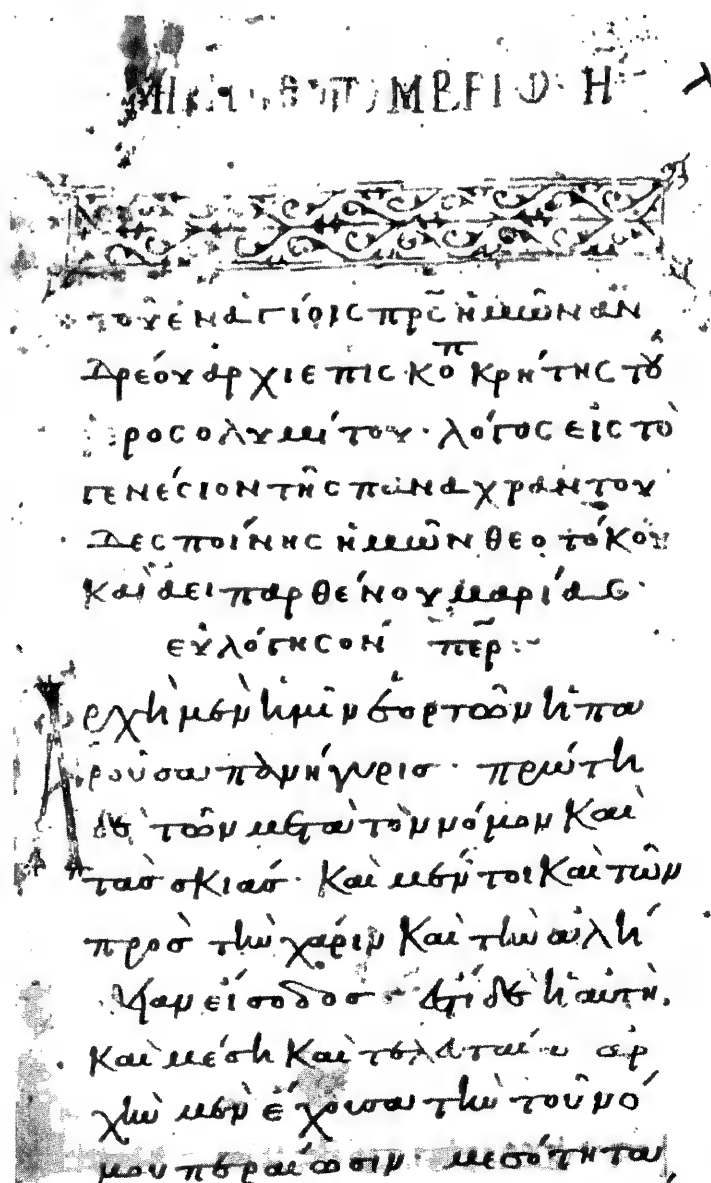 ΜΒΡΙΩ Η
τοῦ ἐν ἁγίοις πρ̅ς ἡμῶν ἀν
δρέου ἀρχιεπισκοπ κρήτης τοῦ
λόγος εἰς τὸ
γενέσιον τῆς παναχράντου
δεσποίνης ἡμῶν θεοτόκου
καὶ ἀει παρθένου μαρίας·
εὐλόγησον περ
Ἀρχὴ μὲν ἡμῖν ἑορτῶν ἡ πα
ροῦσα πανήγυρισ· πρώτη
δὲ τῶν μετὰ τὸν νόμον καὶ
τὰσ σκιάσ· καὶ μέν τοι καὶ τῶν
προσ τὴν χάριν καὶ τὴν ἀλή
θειαν εἴσοδοσ· ἔστι δὲ ἡ αὐτὴ,
καὶ μέση καὶ τελευταία ἀρ
χὴν μὲν ἔχουσα τὴν τοῦ νό
μου περαίωσιν· μεσότητα,